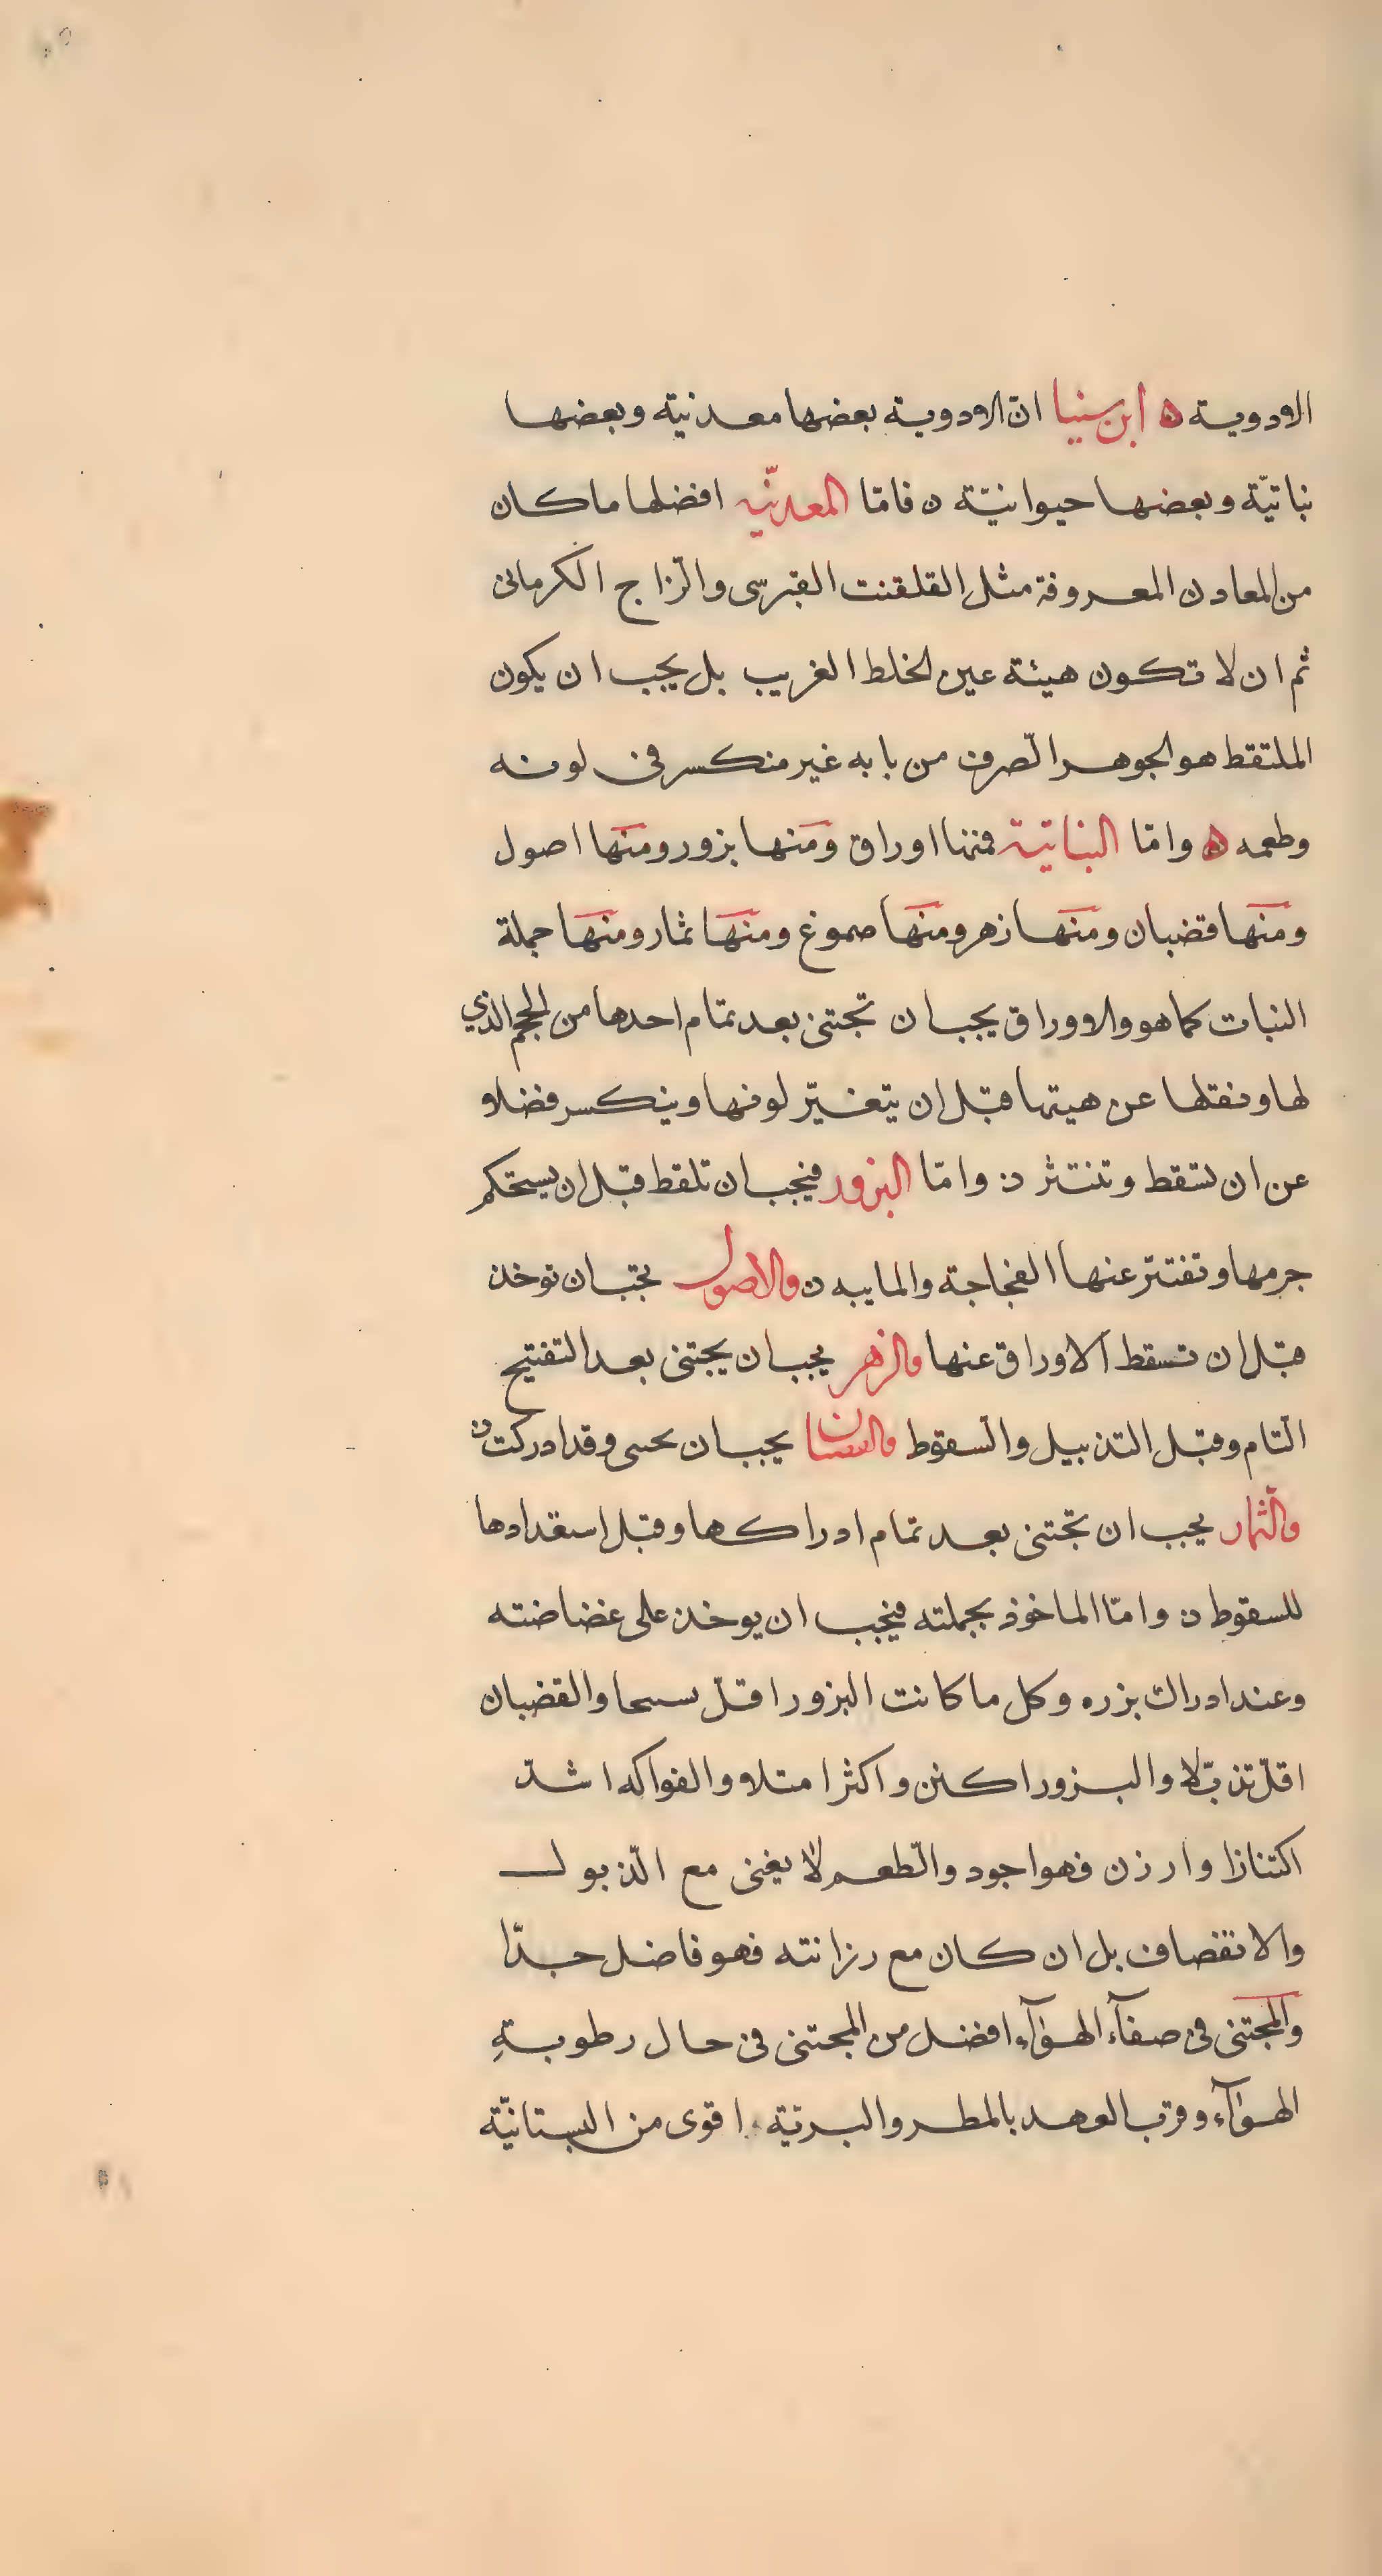 الادوية ه ابن سينا ان الادوية بعضها معدنية وبعضها
نباتيّة وبعضها حيوانيّة ن فامّا المعدنّيه افضلها ما كان
من المعادن المعروفة مثل القلقنت القبرسى والزّاج الكرمانى
ثم ان لا تكون هيئة عين الخلط الغريب بل يجب ان يكون
الملتقط هو الجوهر الصّرف من بابه غير منكسر فى لونه
وطعمه ه وامّا النباتيّة فمنها اوراق ومنها بزور ومنها اصول
ومنها قضبان ومنها زهر ومنها صموغ ومنها ثمار ومنها جملة
النبات كما هو والاوراق يجب ان تجتنى بعد تمام احدها من الحجم الذي
لها ونقلها عن هيتها قبل ان يتغيّر لونها وينكسر فضلا
عن ان تسقط وتنتثر ن وامّا البزور فيجب ان تلقط قبل ان يستحكم
جرمها وتفتتر عنها الفجاجة والمايیه ن والاصول يجب ان توخذ
قبل ان تسقط الاوراق عنها والزهر يجب ان يجتنى بعد التفتيح
التّام وقبل التذبيل والسقوط يجب ان وقد ادركت ن
والثمار يجب ان تجتنى بعد تمام ادراكها وقبل استعدادها
للسقوط ن وامّا الماخوذ بجملته فيجب ان يوخذ على غضاضته
وعند ادراك بزره وكل ما كانت البزور اقلّ والقضبان
اقلّ تذبّلا والبزور اكنن واكثر امتلا والفواكه اشدّ
اكتنازا وارزن فهو اجود والطعم لا يغنى مع الذبول
والانقصاف بل ان كان مع رزانته فهو فاضل جدّا
والمجتنى فى صفآء الهوآء افضل من المجتنى فى حال رطوبةِ
الهوآء وقرب العهد بالمطر والبريّة اقوى من البستانيّة